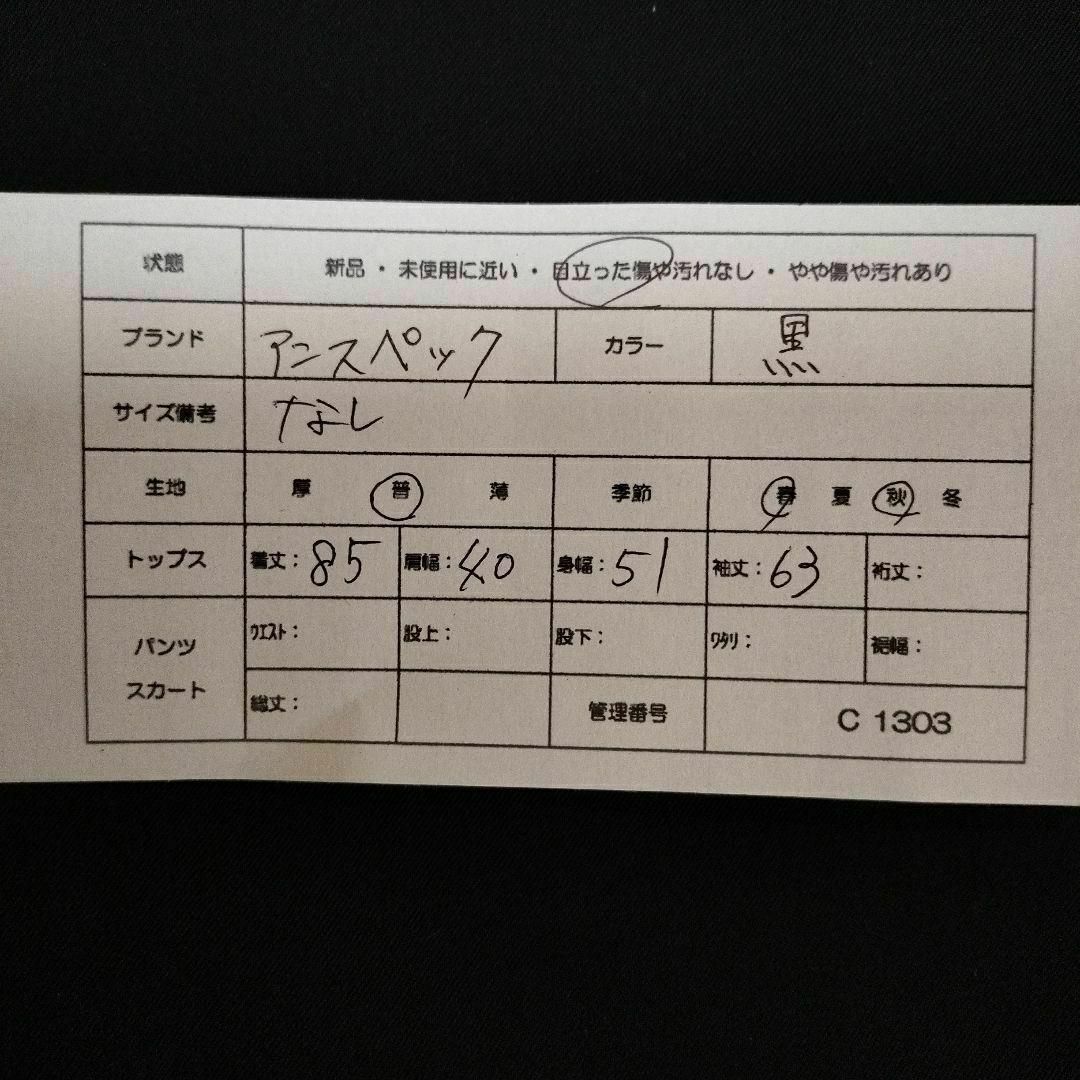 状態 新品・未使用に近い・目立った傷や汚れなし・やや傷や汚れあり
ブランド アンスペック カラー 黒
サイズ備考 なし
生地 厚 普 薄 季節 春 夏 秋 冬
トップス 着丈：85 肩幅：40 身幅：51 袖丈：63 裄丈：
パンツ スカート ウエスト： 股上： 股下： ワタリ： 裾幅：
総丈： 管理番号 C 1303